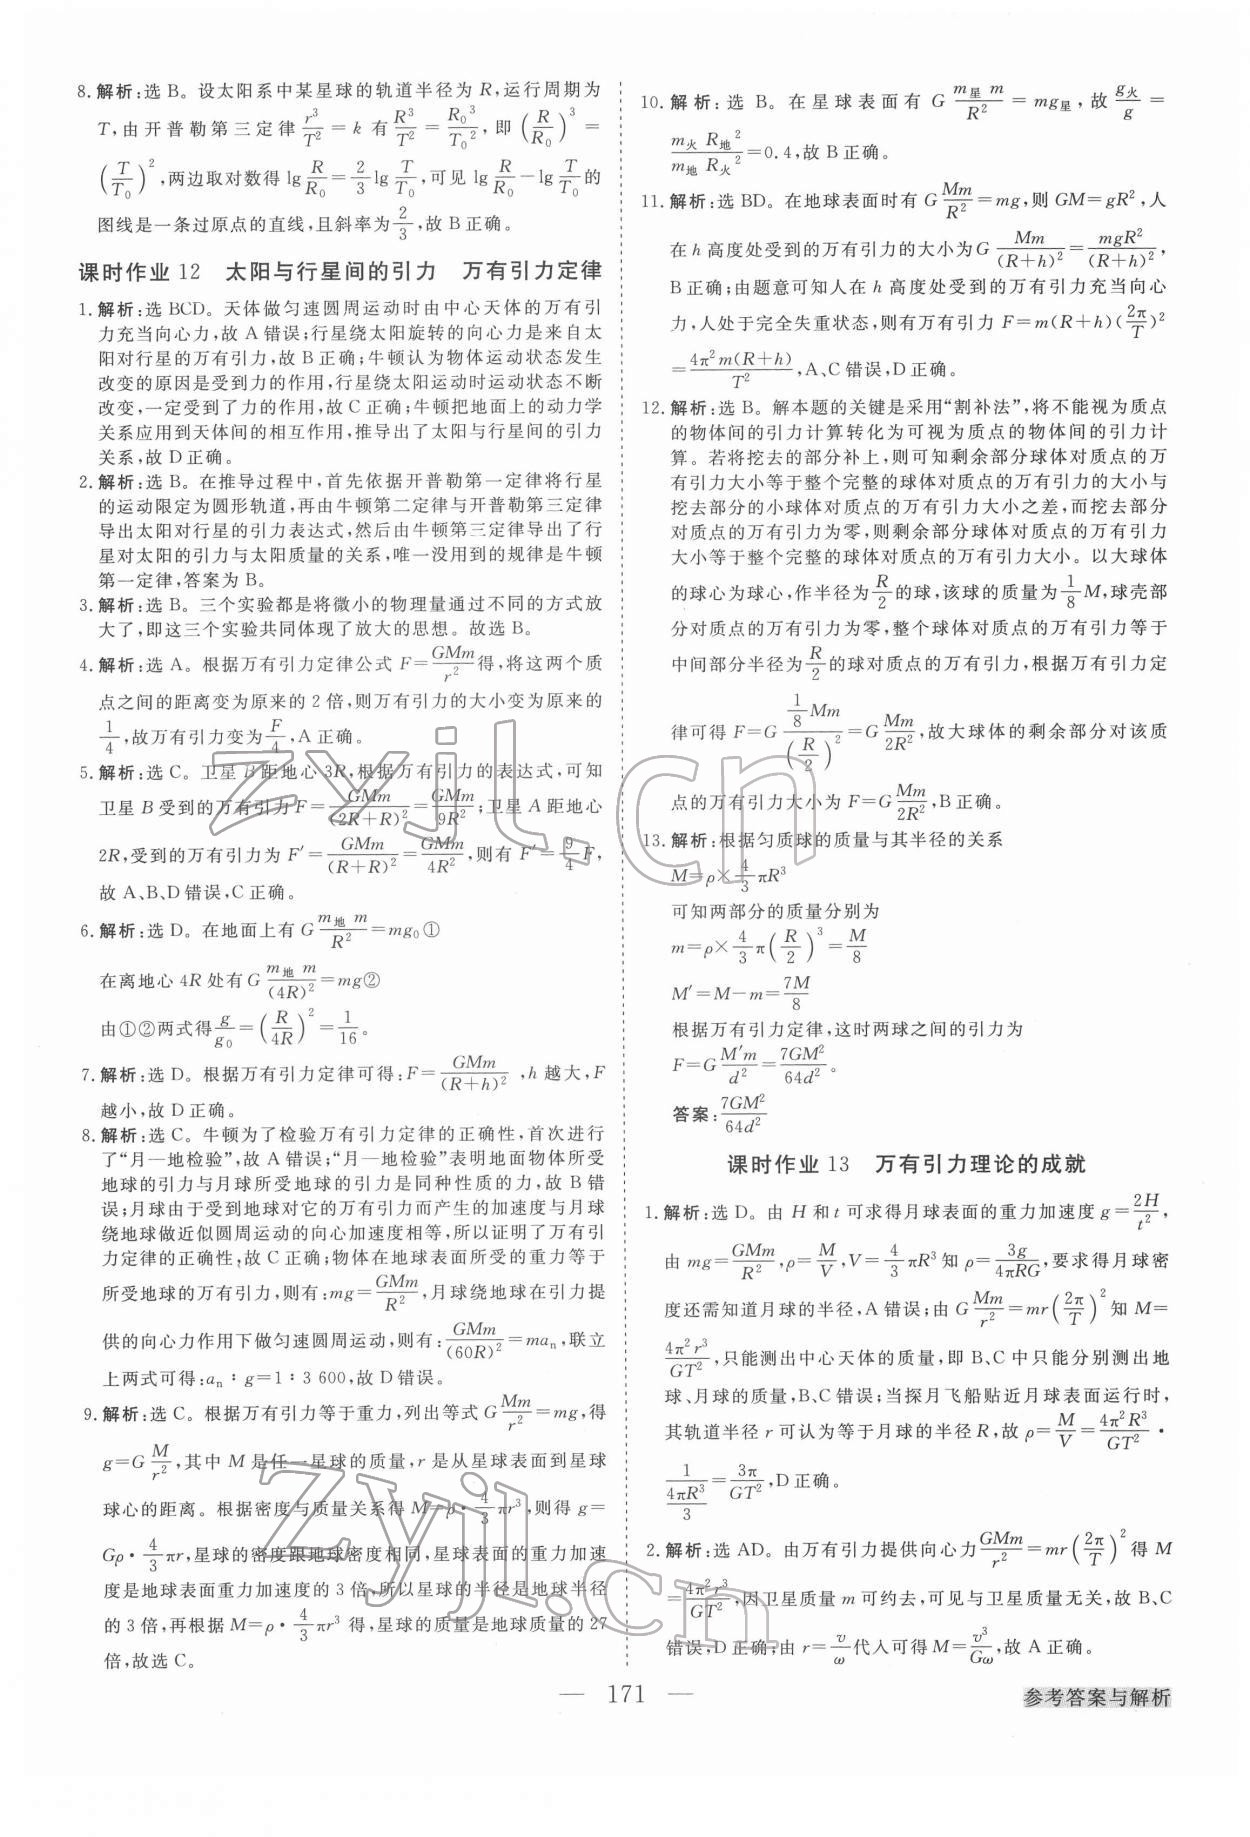 8. 解析:选 B。设太阳系中某星球的轨道半径为 R,运行周期为
T,由开普勒第三定律 r³/T² = k 有 R³/T² = R₀³/T₀²,即 (R/R₀)³ =
(T/T₀)²,两边取对数得 lg R/R₀ = 2/3 lg T/T₀,可见 lg R/R₀ - lg T/T₀ 的
图线是一条过原点的直线,且斜率为 2/3,故 B 正确。
课时作业 12 太阳与行星间的引力 万有引力定律
1. 解析:选 BCD。天体做匀速圆周运动时由中心天体的万有引
力充当向心力,故 A 错误;行星绕太阳旋转的向心力是来自太
阳对行星的万有引力,故 B 正确;牛顿认为物体运动状态发生
改变的原因是受到力的作用,行星绕太阳运动时运动状态不断
改变,一定受到了力的作用,故 C 正确;牛顿把地面上的动力学
关系应用到天体间的相互作用,推导出了太阳与行星间的引力
关系,故 D 正确。
2. 解析:选 B。在推导过程中,首先依据开普勒第一定律将行星
的运动限定为圆形轨道,再由牛顿第二定律与开普勒第三定律
导出太阳对行星的引力表达式,然后由牛顿第三定律导出了行
星对太阳的引力与太阳质量的关系,唯一没用到的规律是牛顿
第一定律,答案为 B。
3. 解析:选 B。三个实验都是将微小的物理量通过不同的方式放
大了,即这三个实验共同体现了放大的思想。故选 B。
4. 解析:选 A。根据万有引力定律公式 F=GMm/r² 得,将这两个质
点之间的距离变为原来的 2 倍,则万有引力的大小变为原来的
1/4,故万有引力变为 F/4,A 正确。
5. 解析:选 C。卫星 B 距地心 3R,根据万有引力的表达式,可知
卫星 B 受到的万有引力 F=GMm/(2R+R)²=GMm/9R²;卫星 A 距地心
2R,受到的万有引力为 F′=GMm/(R+R)²=GMm/4R²,则有 F′=9/4 F,
故 A、B、D 错误,C 正确。
6. 解析:选 D。在地面上有 G m地 m/R²=mg₀①
在离地心 4R 处有 G m地 m/(4R)²=mg②
由①②两式得 g/g₀=(R/4R)²=1/16。
7. 解析:选 D。根据万有引力定律可得:F=GMm/(R+h)²,h 越大,F
越小,故 D 正确。
8. 解析:选 C。牛顿为了检验万有引力定律的正确性,首次进行
了“月—地检验”,故 A 错误;“月—地检验”表明地面物体所受
地球的引力与月球所受地球的引力是同种性质的力,故 B 错
误;月球由于受到地球对它的万有引力而产生的加速度与月球
绕地球做近似圆周运动的向心加速度相等,所以证明了万有引
力定律的正确性,故 C 正确;物体在地球表面所受的重力等于
所受地球的万有引力,则有:mg=GMm/R²,月球绕地球在引力提
供的向心力作用下做匀速圆周运动,则有:GMm/(60R)²=maₙ,联立
上两式可得:aₙ∶g=1∶3 600,故 D 错误。
9. 解析:选 C。根据万有引力等于重力,列出等式 G Mm/r²=mg,得
g=G M/r²,其中 M 是任一星球的质量,r 是从星球表面到星球
球心的距离。根据密度与质量关系得 M=ρ·4/3 πr³,则得 g=
Gρ·4/3 πr,星球的密度跟地球密度相同,星球表面的重力加速
度是地球表面重力加速度的 3 倍,所以星球的半径是地球半径
的 3 倍,再根据 M=ρ·4/3 πr³ 得,星球的质量是地球质量的 27
倍,故选 C。
10. 解析:选 B。在星球表面有 G m星 m/R² = mg星,故 g火/g =
m火 R地²/m地 R火²=0.4,故 B 正确。
11. 解析:选 BD。在地球表面时有 G Mm/R²=mg,则 GM=gR²,人
在 h 高度处受到的万有引力的大小为 G Mm/(R+h)²=mgR²/(R+h)²,
B 正确;由题意可知人在 h 高度处受到的万有引力充当向心
力,人处于完全失重状态,则有万有引力 F=m(R+h)(2π/T)²
=4π²m(R+h)/T²,A、C 错误,D 正确。
12. 解析:选 B。解本题的关键是采用“割补法”,将不能视为质点
的物体间的引力计算转化为可视为质点的物体间的引力计
算。若将挖去的部分补上,则可知剩余部分球体对质点的万
有引力大小等于整个完整的球体对质点的万有引力的大小与
挖去部分的小球体对质点的万有引力大小之差,而挖去部分
对质点的万有引力为零,则剩余部分球体对质点的万有引力
大小等于整个完整的球体对质点的万有引力大小。以大球体
的球心为球心,作半径为 R/2 的球,该球的质量为 1/8 M,球壳部
分对质点的万有引力为零,整个球体对质点的万有引力等于
中间部分半径为 R/2 的球对质点的万有引力,根据万有引力定
律可得 F=G (1/8 Mm)/(R/2)²=G Mm/2R²,故大球体的剩余部分对该质
点的万有引力大小为 F=G Mm/2R²,B 正确。
13. 解析:根据匀质球的质量与其半径的关系
M=ρ×4/3 πR³
可知两部分的质量分别为
m=ρ×4/3 π(R/2)³=M/8
M′=M-m=7M/8
根据万有引力定律,这时两球之间的引力为
F=G M′m/d²=7GM²/64d²。
答案:7GM²/64d²
课时作业 13 万有引力理论的成就
1. 解析:选 D。由 H 和 t 可求得月球表面的重力加速度 g=2H/t²,
由 mg=GMm/R²,ρ=M/V,V=4/3 πR³ 知 ρ=3g/4πRG,要求得月球密
度还需知道月球的半径,A 错误;由 G Mm/r²=mr(2π/T)² 知 M=
4π²r³/GT²,只能测出中心天体的质量,即 B、C 中只能分别测出地
球、月球的质量,B、C 错误;当探月飞船贴近月球表面运行时,
其轨道半径 r 可认为等于月球的半径 R,故 ρ=M/V=4π²R³/GT²·
1/(4πR³/3)=3π/GT²,D 正确。
2. 解析:选 AD。由万有引力提供向心力 GMm/r²=mr(2π/T)² 得 M
=4π²r³/GT²,因卫星质量 m 可约去,可见与卫星质量无关,故 B、C
错误,D 正确;由 r=v/ω 代入可得 M=v³/Gω,故 A 正确。
— 171 —
参考答案与解析
zyjl.cn
zyjl.cn